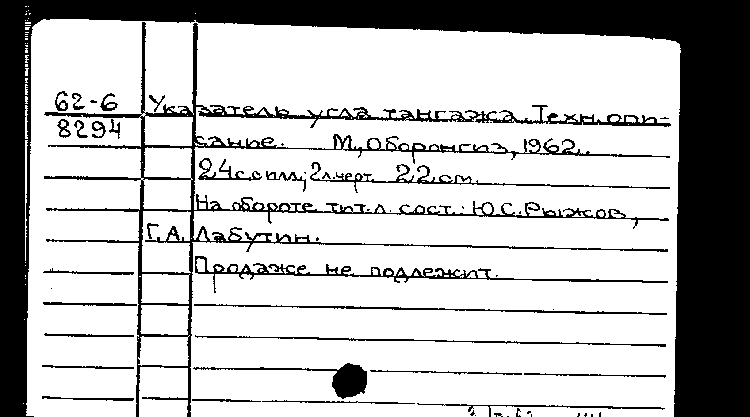 62-6 Указатель угла тангажа. Техн. опи-
8294 сание. М., Оборонгиз, 1962.
24с. с илл.; 2л. черт. 22 см.
На обороте тит. л. сост.: Ю.С. Рыжов,
Г.А. Лабутин.
Продаже не подлежит.